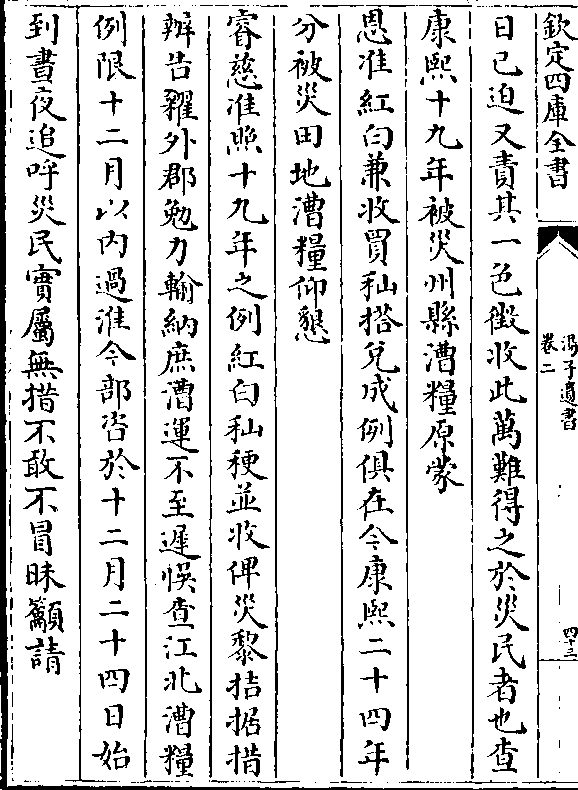 欽定四庫全書
湯子遺書
卷二
四十三
日已迫又責其一色徵收此萬難得之於災民者也查
康熙十九年被災州縣漕糧原蒙
恩准紅白兼收買秈搭兌成例俱在今康熙二十四年
分被災田地漕糧仰懇
睿慈准照十九年之例紅白秈稉並收俾災黎拮据措
辦告糴外郡勉力輸納庶漕運不至遲悞查江北漕糧
例限十二月以內過淮今部咨於十二月二十四日始
到晝夜追呼災民實屬無措不敢不冒昧籲請